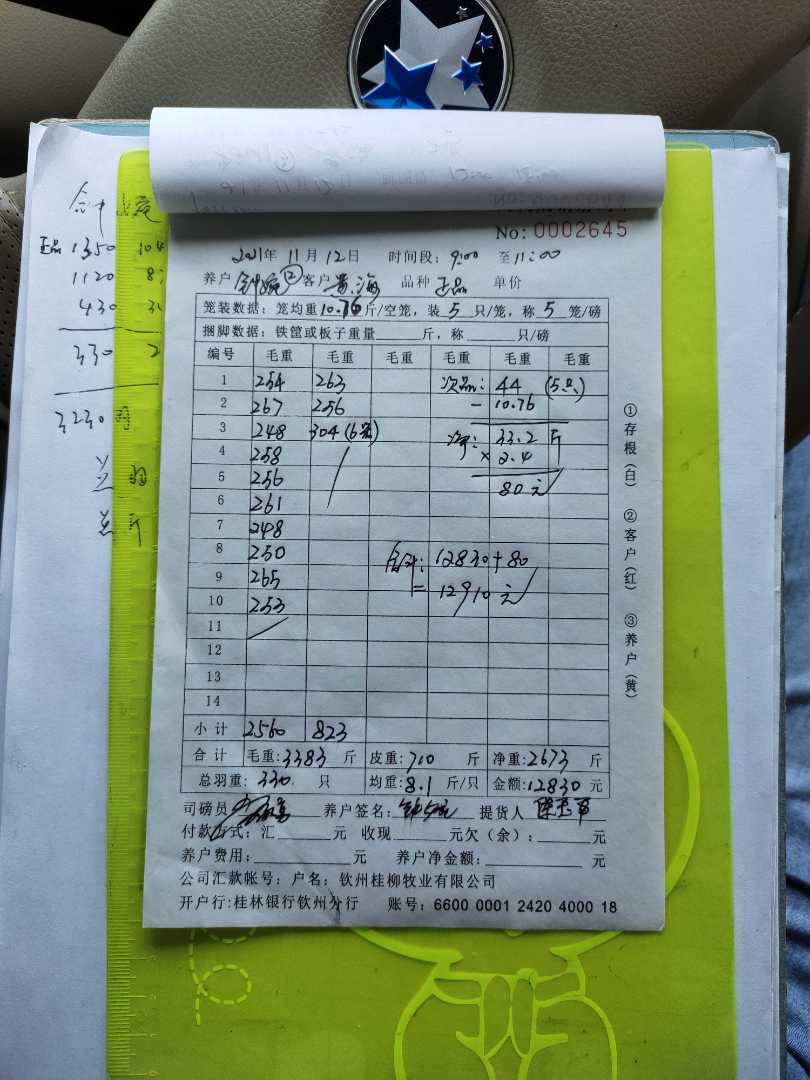 正品 1350
1120
430
330
3230 羽
No: 0002645
2021年 11月 12日 时间段: 9:00 至 11:00
养户 客户 黄海 品种 正品 单价
笼装数据: 笼均重10.76斤/空笼, 装 5 只/笼, 称 5 笼/磅
捆脚数据: 铁筐或板子重量____斤, 称____只/磅
编号 毛重 毛重 毛重 毛重 毛重 毛重
1 254 263 次品: 44 (5只)
2 267 256 - 10.76
3 248 304 (6笼) 净: 33.2 斤
4 258 × 2.4
5 256 80元
6 261
7 248
8 250 合计: 12830+80
9 265 = 12910元
10 253
11
12
13
14
小计 2560 823
合计 毛重:3383 斤 皮重:710 斤 净重:2673 斤
总羽重: 330 只 均重:8.1 斤/只 金额:12830 元
司磅员 养户签名: 提货人
付款方式: 汇____元 收现____元欠(余):____元
养户费用:____元 养户净金额:____元
公司汇款帐号: 户名: 钦州桂柳牧业有限公司
开户行:桂林银行钦州分行 账号: 6600 0001 2420 4000 18
①存根(白) ②客户(红) ③养户(黄)